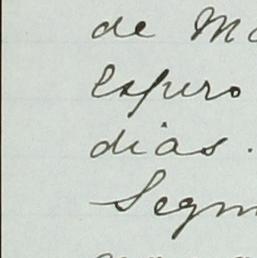 de M
Espero
dias.
Segu